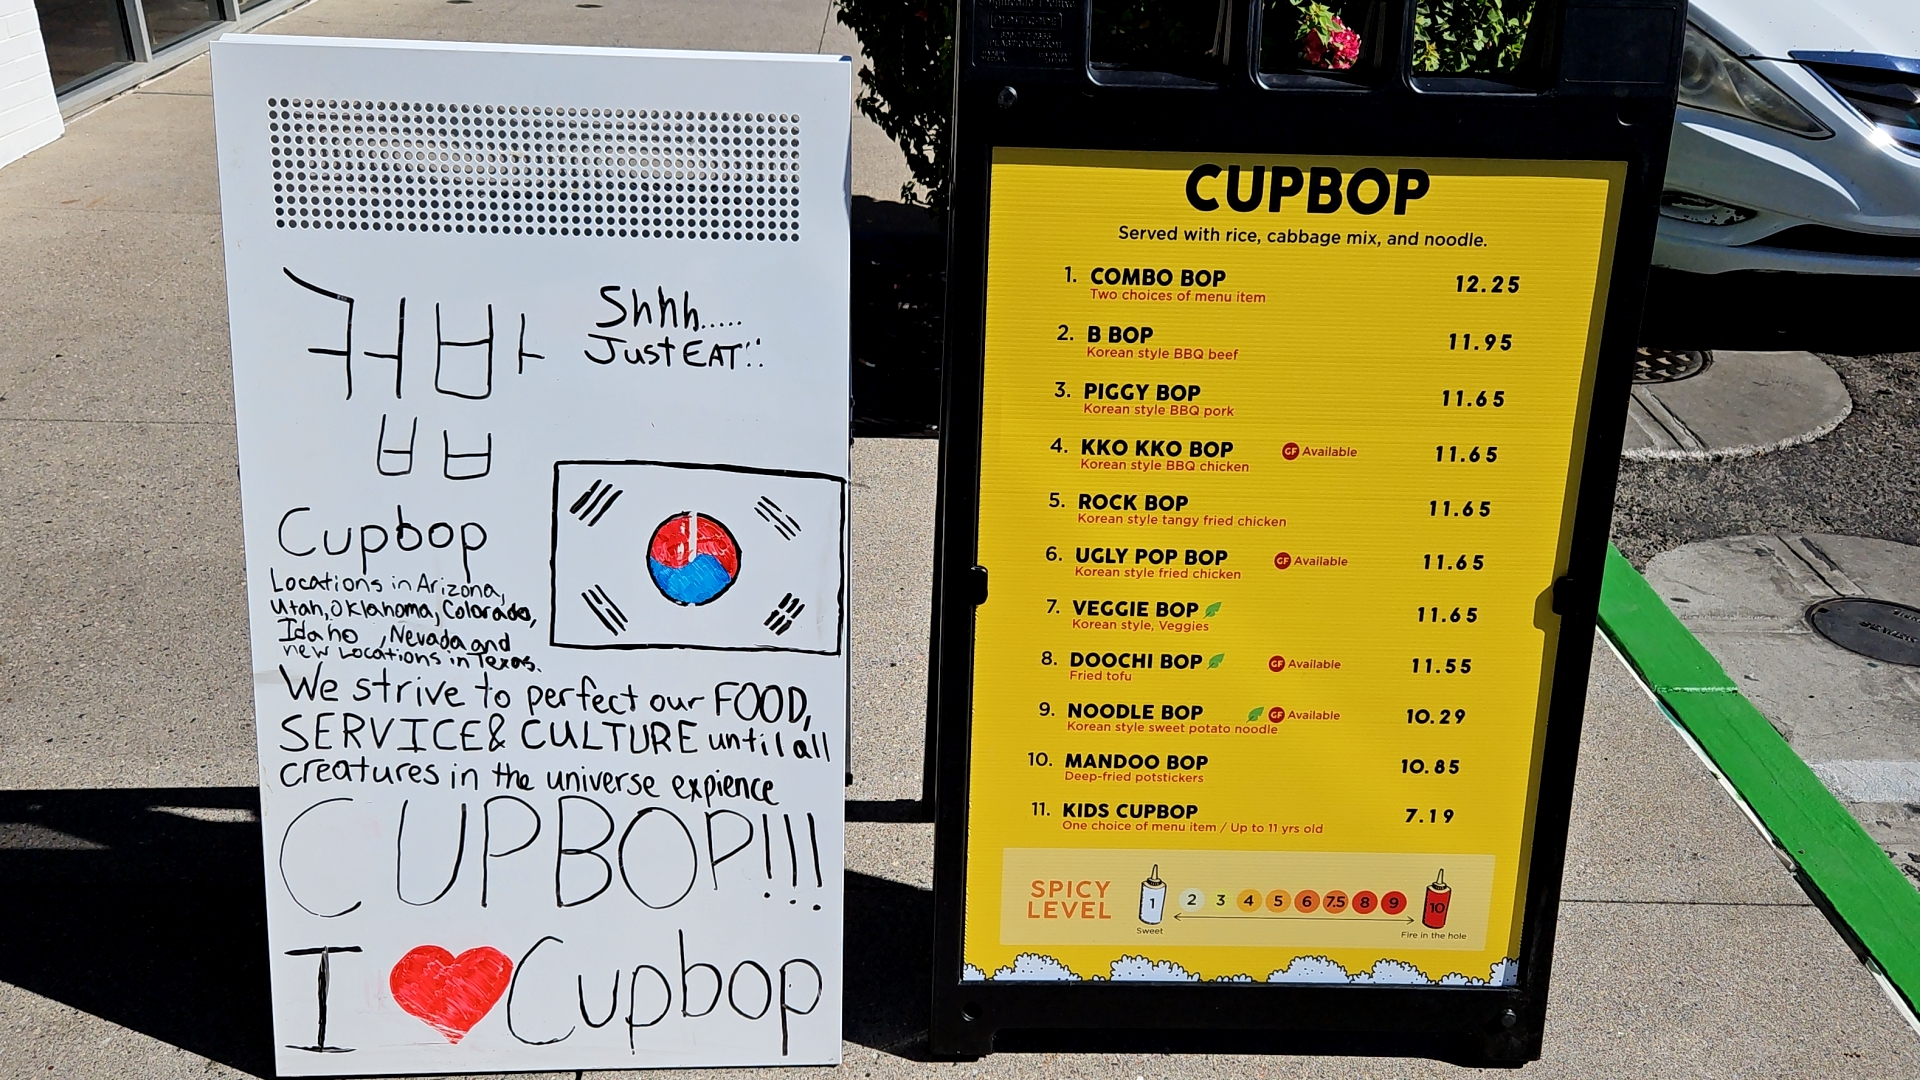 컵밥
Shhh.....
Just EAT!!
Cupbop
Locations in Arizona,
Utah, Oklahoma, Colorado,
Idaho , Nevada and
new Locations in Texas.
We strive to perfect our FOOD,
SERVICE & CULTURE until all
creatures in the universe expience
CUPBOP!!!
I ♥ Cupbop
CUPBOP
Served with rice, cabbage mix, and noodle.
1. COMBO BOP 12.25
Two choices of menu item
2. B BOP 11.95
Korean style BBQ beef
3. PIGGY BOP 11.65
Korean style BBQ pork
4. KKO KKO BOP GF Available 11.65
Korean style BBQ chicken
5. ROCK BOP 11.65
Korean style tangy fried chicken
6. UGLY POP BOP GF Available 11.65
Korean style fried chicken
7. VEGGIE BOP 11.65
Korean style, Veggies
8. DOOCHI BOP GF Available 11.55
Fried tofu
9. NOODLE BOP GF Available 10.29
Korean style sweet potato noodle
10. MANDOO BOP 10.85
Deep-fried potstickers
11. KIDS CUPBOP 7.19
One choice of menu item / Up to 11 yrs old
SPICY
LEVEL
1 2 3 4 5 6 7.5 8 9 10
Sweet Fire in the hole